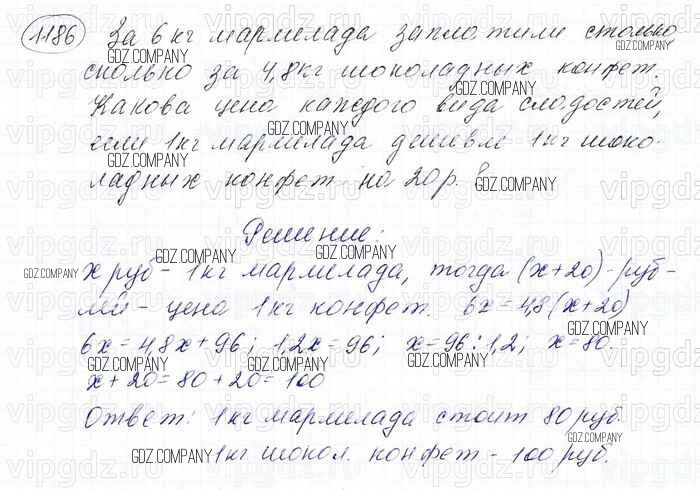 1186 За 6 кг мармелада заплатили столько
сколько за 4,8кг шоколадных конфет.
Какова цена каждого вида сладостей,
если 1кг мармелада дешевле 1кг шоко-
ладных конфет на 20р.?
Решение:
х руб - 1кг мармелада, тогда (х+20)-руб-
ми - цена 1кг конфет. 6х=4,8(х+20)
6х=4,8х+96; 1,2х=96; х=96:1,2; х=80.
х+20=80+20=100
Ответ: 1кг мармелада стоит 80руб.
1кг шокол. конфет - 100руб.
GDZ.COMPANY
vipgdz.ru